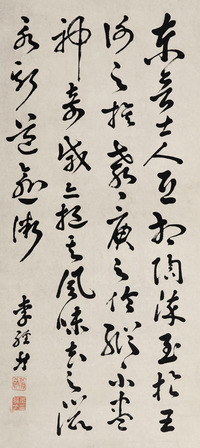 東晉士人互相陶染至於王
謝之族郗庾之倫縱不盡
神奇咸亦挹其風味去之滋
永斯道愈微
李